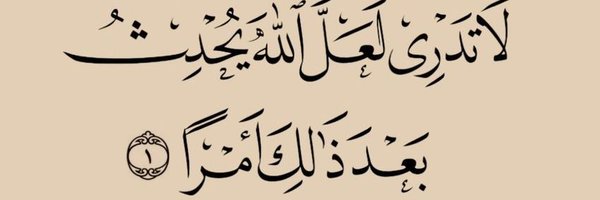 لَا تَدْرِى لَعَلَّ ٱللَّهَ يُحْدِثُ
بَعْدَ ذَٰلِكَ أَمْرًا ١